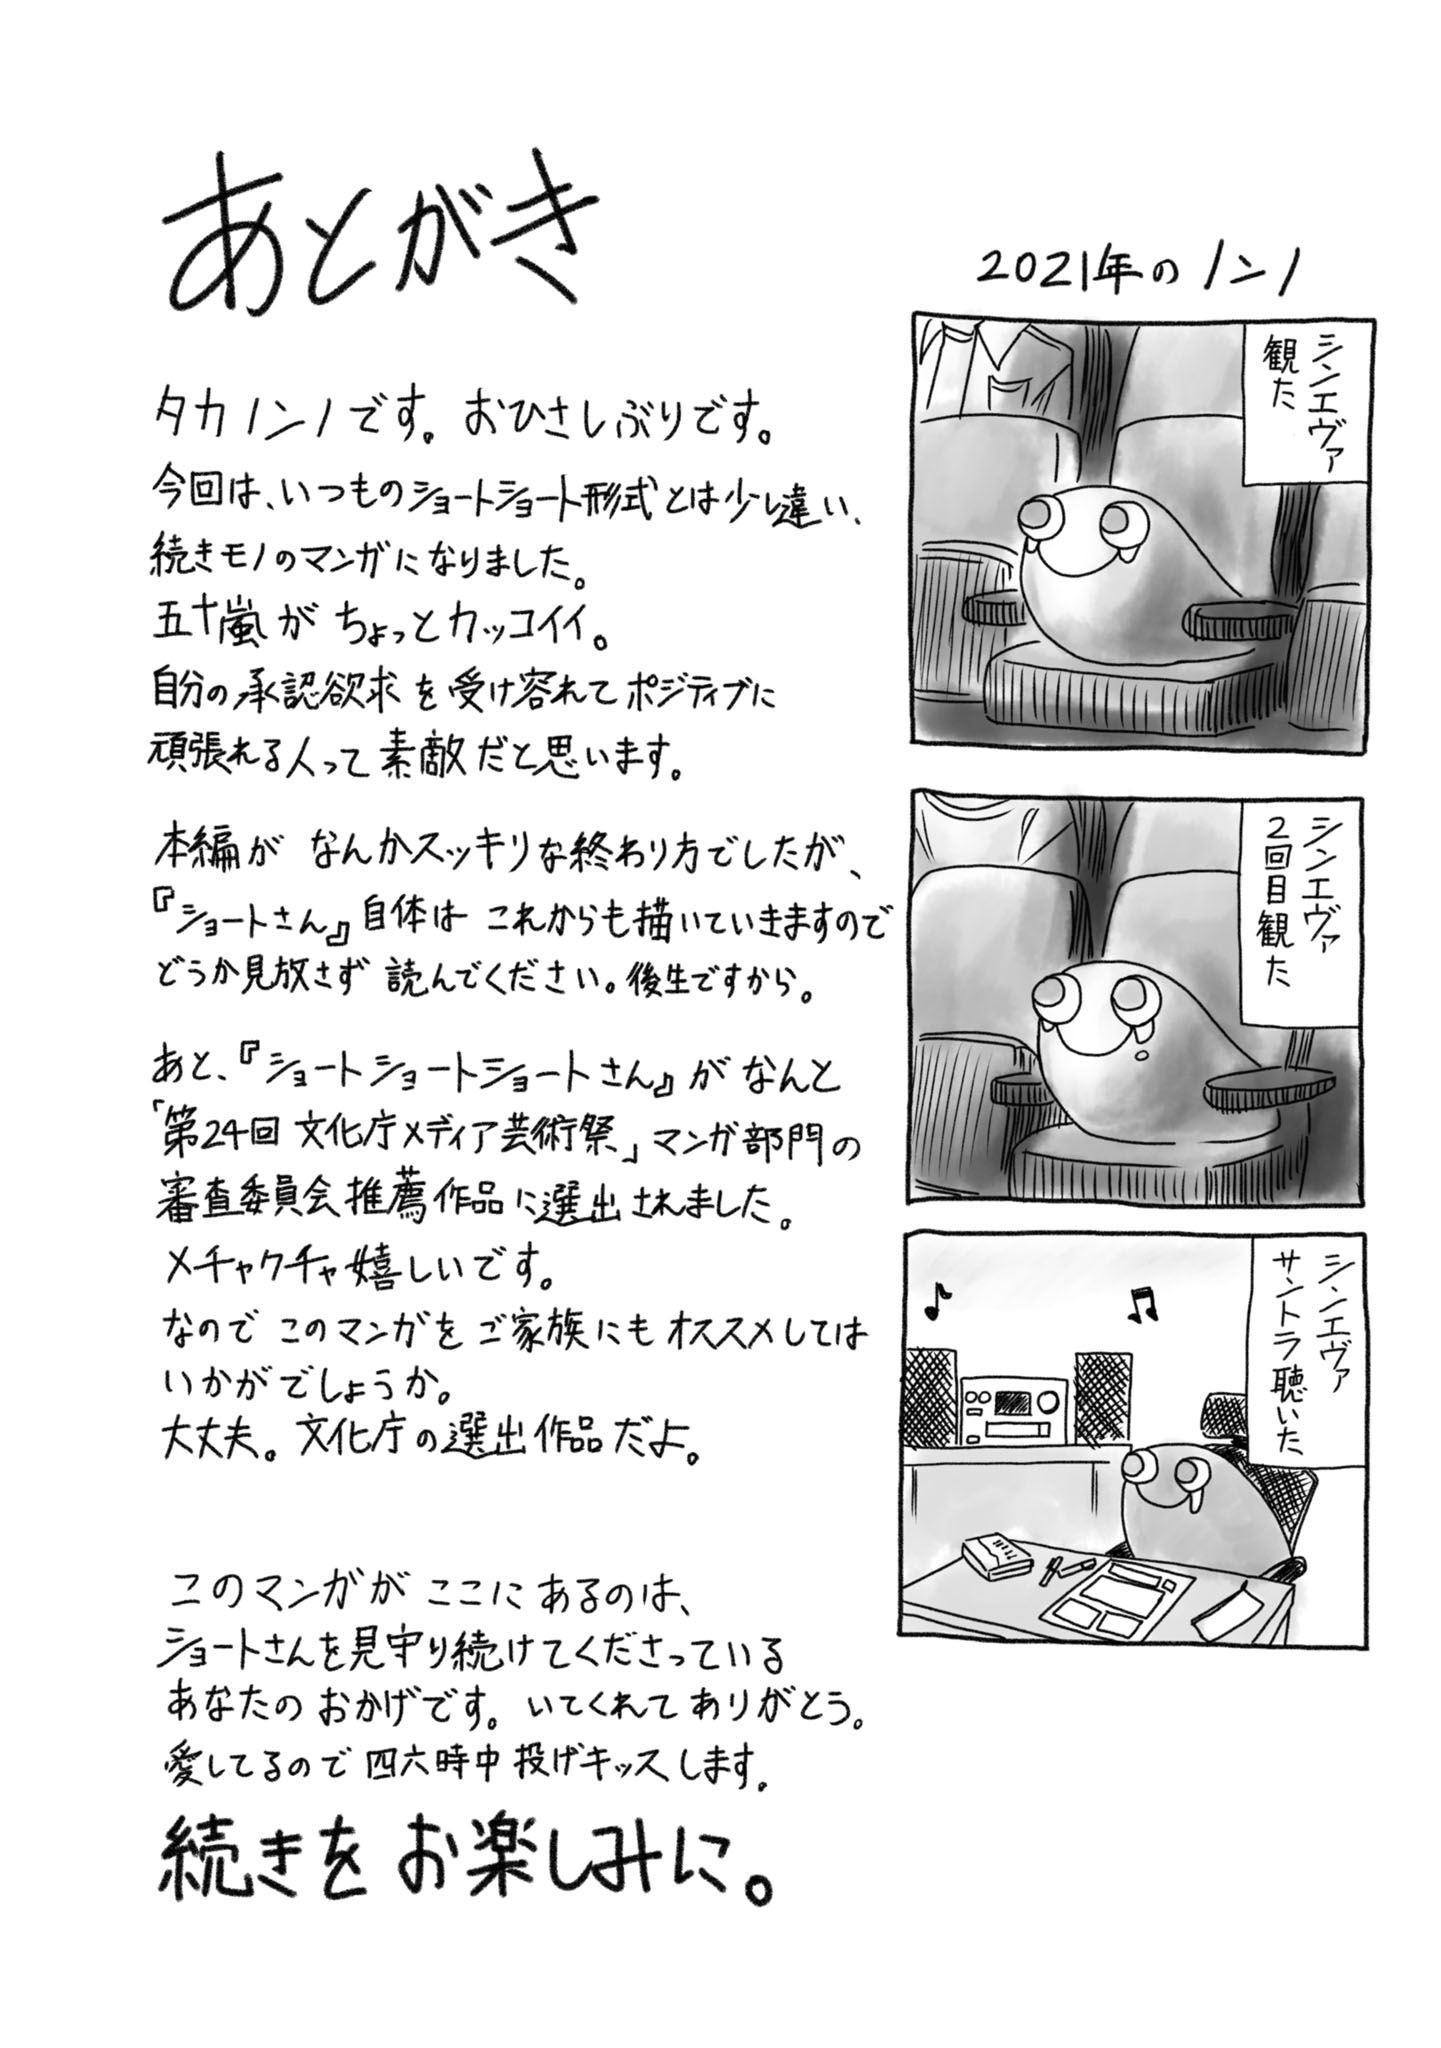 あとがき
タカノンノです。おひさしぶりです。
今回は、いつものショートショート形式とは少し違い、
続きモノのマンガになりました。
五十嵐がちょっとカッコイイ。
自分の承認欲求を受け容れてポジティブに
頑張れる人って素敵だと思います。
本編がなんかスッキリな終わり方でしたが、
『ショートさん』自体はこれからも描いていきますので
どうか見放さず読んでください。後生ですから。
あと、『ショートショートショートさん』がなんと
「第24回文化庁メディア芸術祭」マンガ部門の
審査委員会推薦作品に選出されました。
メチャクチャ嬉しいです。
なのでこのマンガをご家族にもオススメしては
いかがでしょうか。
大丈夫。文化庁の選出作品だよ。
このマンガがここにあるのは、
ショートさんを見守り続けてくださっている
あなたのおかげです。いてくれてありがとう。
愛してるので四六時中投げキッスします。
続きをお楽しみに。
2021年のノンノ
シンエヴァ
観た
シンエヴァ
2回目観た
シンエヴァ
サントラ聴いた